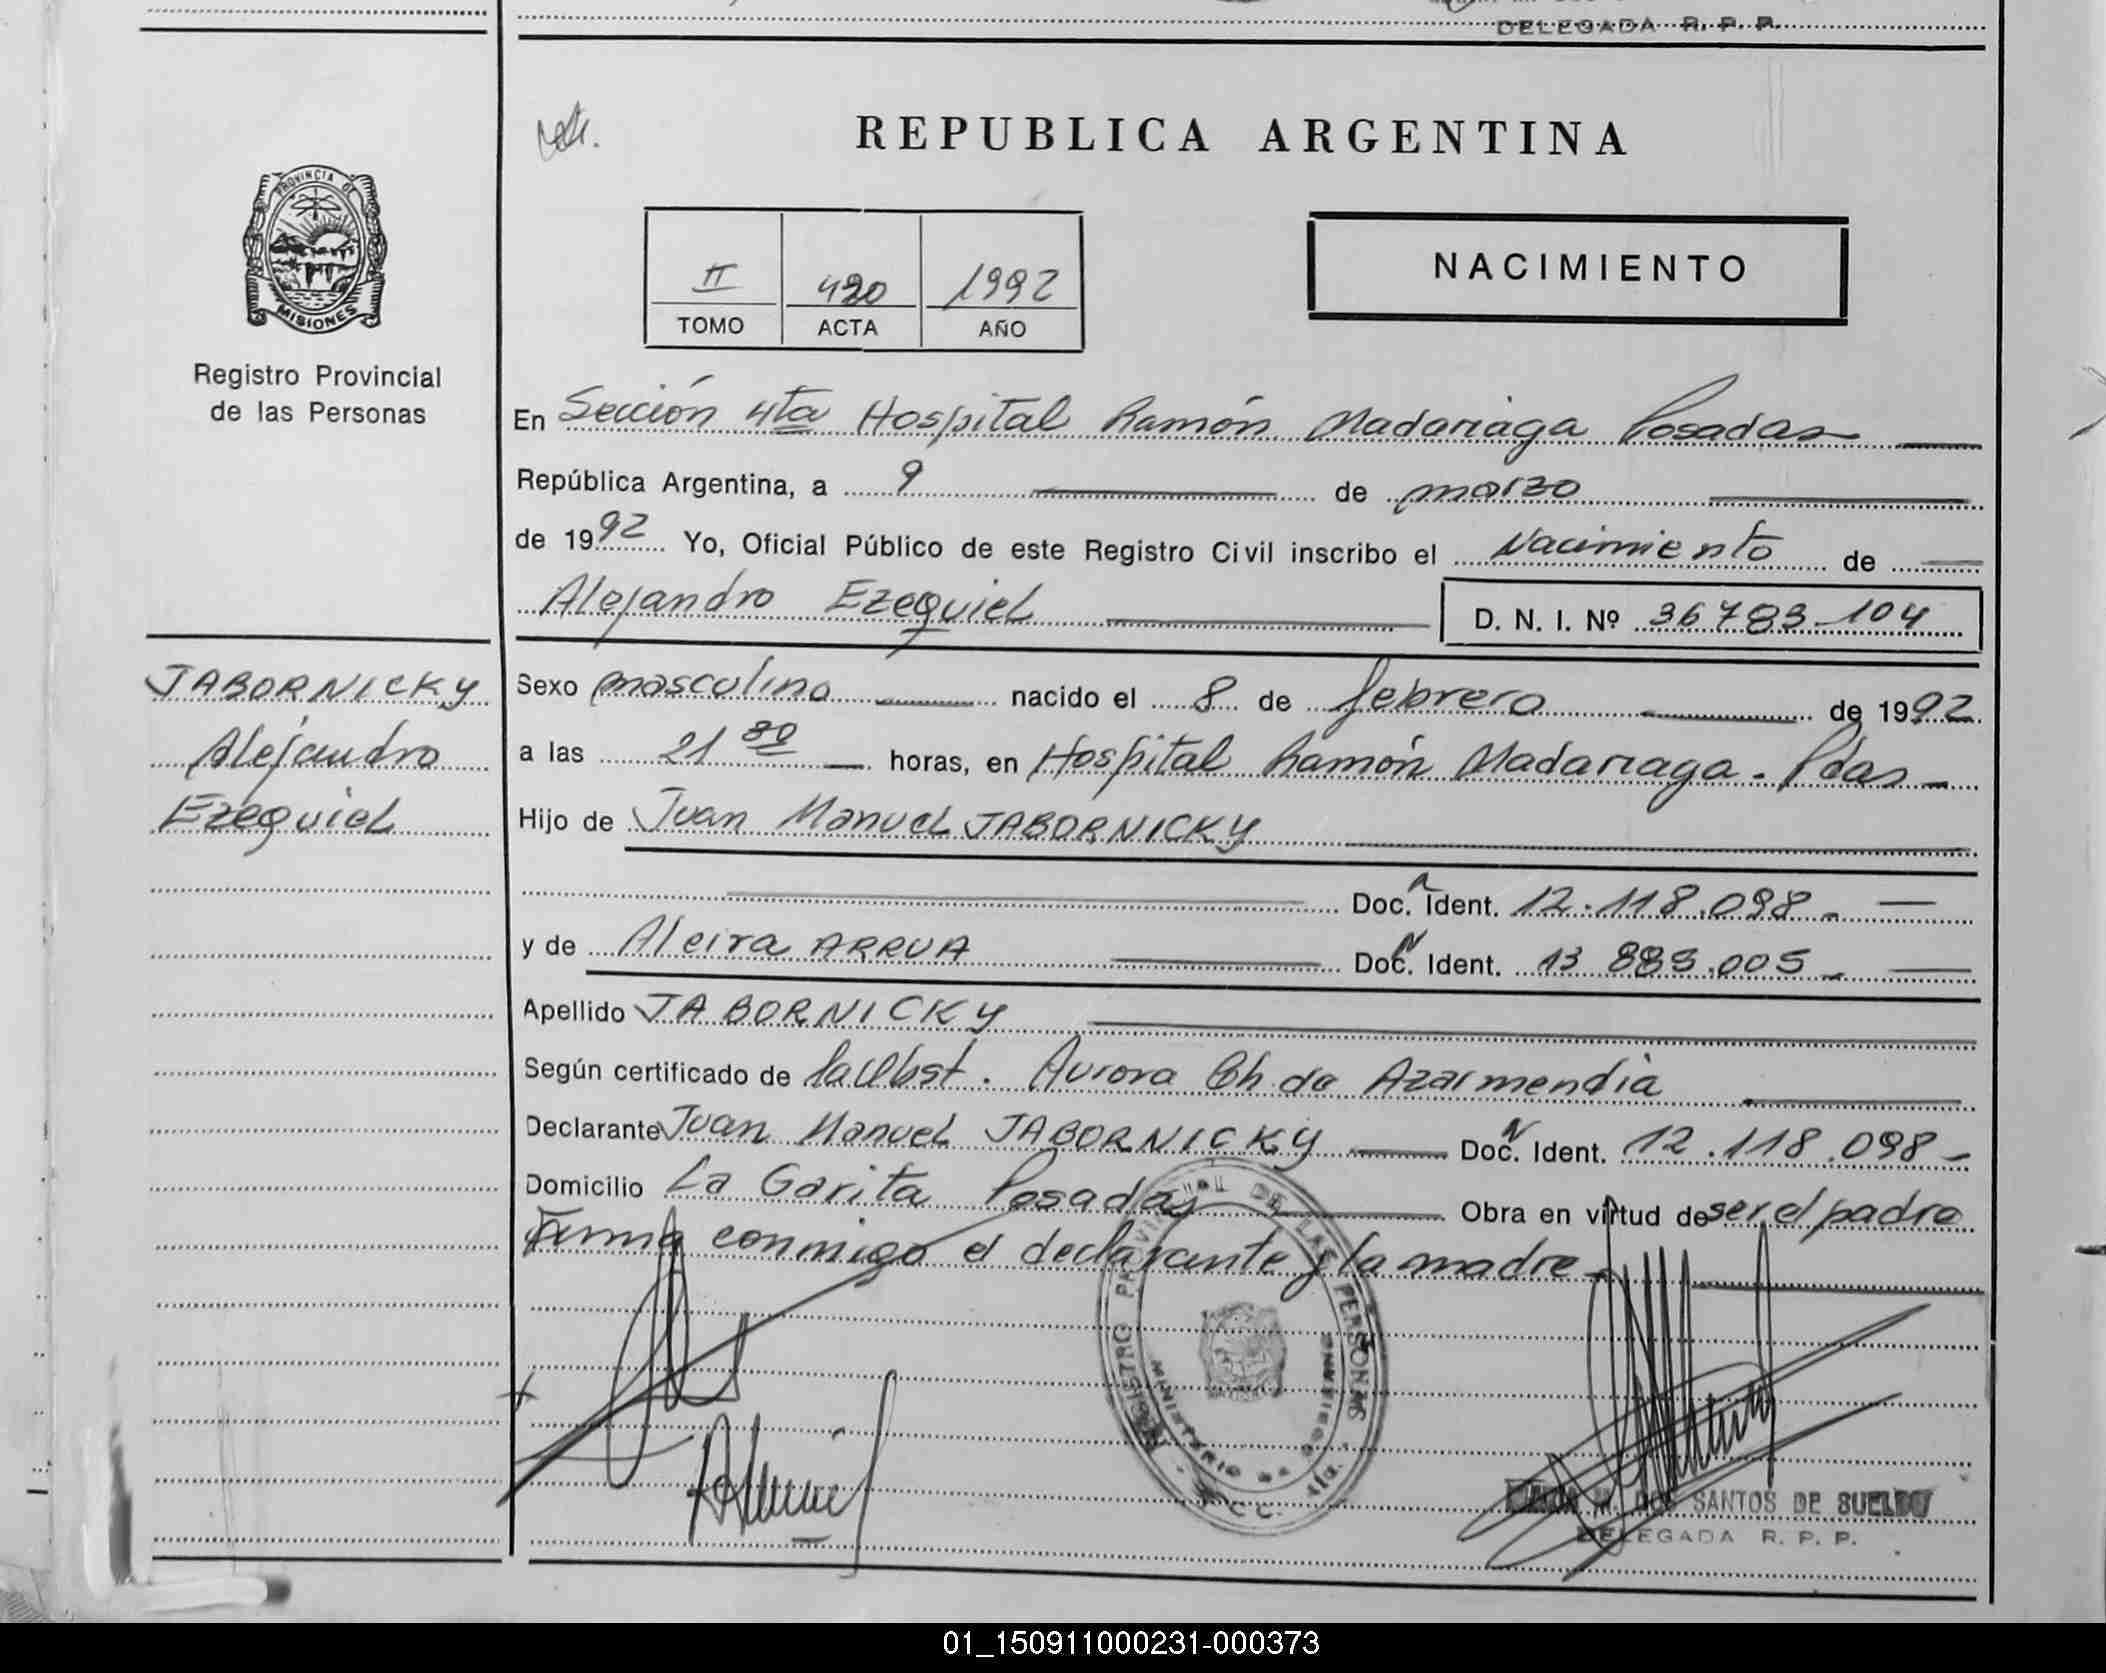 DELEGADA R. P. P.
REPUBLICA ARGENTINA
PROVINCIA DE
MISIONES
Registro Provincial
de las Personas
II 420 1992
TOMO ACTA AÑO
NACIMIENTO
En Sección 4ta Hospital Ramón Madariaga Posadas
República Argentina, a 9 de marzo
de 1992 Yo, Oficial Público de este Registro Civil inscribo el Nacimiento de
Alejandro Ezequiel D. N. I. Nº 36783.104
JABORNICKY
Alejandro
Ezequiel
Sexo masculino nacido el 8 de febrero de 1992
a las 21 30 horas, en Hospital Ramón Madariaga. Pdas
Hijo de Juan Manuel JABORNICKY
Doc. Ident. 12.118.098
y de Alcira ARRUA Doc. Ident. 13 883.005
Apellido JABORNICKY
Según certificado de la Obst. Aurora Ch de Azarmendia
Declarante Juan Manuel JABORNICKY Doc. Ident. 12.118.098
Domicilio La Garita Posadas Obra en virtud de ser el padre
Firma conmigo el declarante y la madre
REGISTRO PROVINCIAL DE LAS PERSONAS
MINISTERIO DE GOBIERNO
M. DOS SANTOS DE SUELDO
DELEGADA R. P. P.
01_150911000231-000373